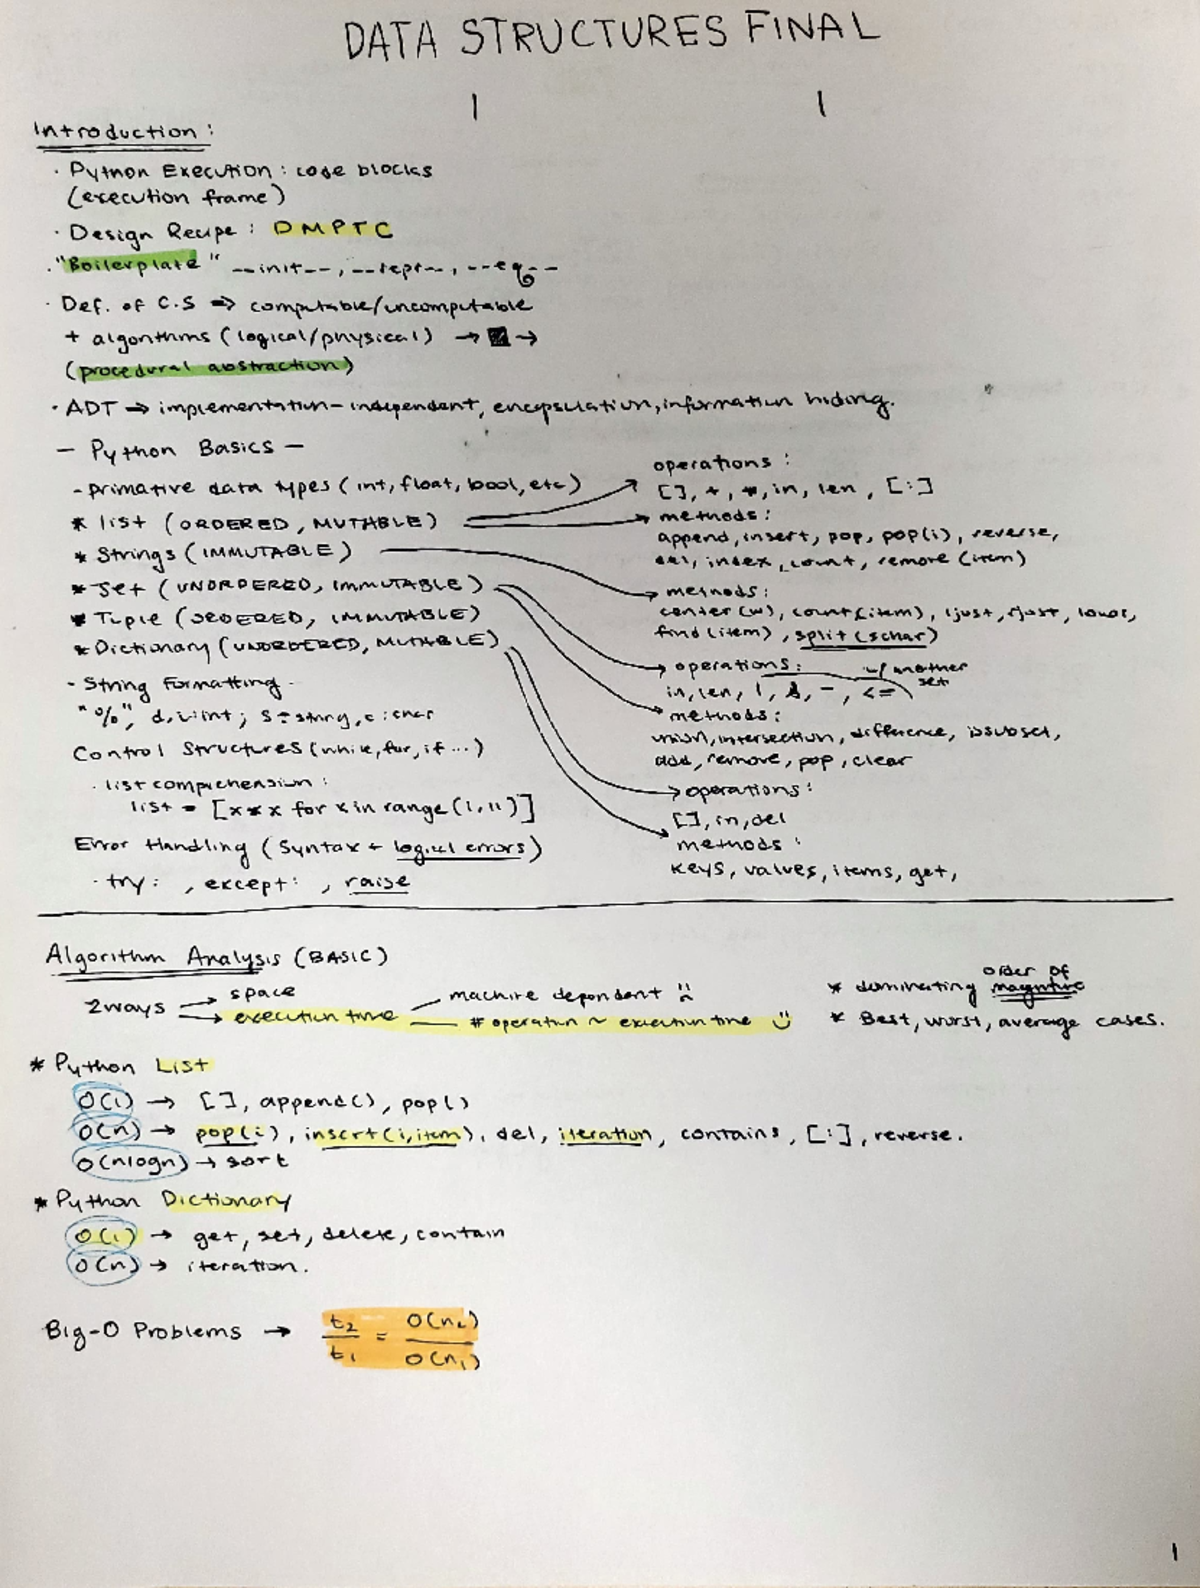 DATA STRUCTURES FINAL
Introduction:
· Python Execution: code blocks
(execution frame)
· Design Recipe: DMPTC
· "Boilerplate" __init__, __repr__, __eq__
· Def. of C.S ⇒ computable/uncomputable
+ algorithms (logical/physical) → ■ →
(procedural abstraction)
· ADT → implementation-independent, encapsulation, information hiding.
— Python Basics —
- primative data types (int, float, bool, etc)
* list (ORDERED, MUTABLE)
* Strings (IMMUTABLE)
* Set (UNORDERED, IMMUTABLE)
* Tuple (ORDERED, IMMUTABLE)
* Dictionary (UNORDERED, MUTABLE)
- String Formatting -
"%", d, i: int; s = string, c: char
Control Structures (while, for, if ...)
· list comprehension:
list = [x*x for x in range(1,11)]
Error Handling (Syntax + logical errors)
· try: , except: , raise
operations:
[], +, *, in, len, [:]
methods:
append, insert, pop, pop(i), reverse,
del, index, count, remove (item)
methods:
center(w), count(item), ljust, rjust, lower,
find(item), split(schar)
operations: w/ another set
in, len, |, &, -, <=
methods:
union, intersection, difference, issubset,
add, remove, pop, clear
operations:
[], in, del
methods:
keys, values, items, get,
Algorithm Analysis (BASIC)
2 ways → space
→ execution time
machine dependent
# operation ~ execution time
* dominating order of magnitude
* Best, worst, average cases.
* Python List
O(1) → [], append(), pop()
O(n) → pop(i), insert(i, item), del, iteration, contains, [:], reverse.
O(nlogn) → sort
* Python Dictionary
O(1) → get, set, delete, contain
O(n) → iteration.
Big-O Problems → t₂/t₁ = O(n₂)/O(n₁)
1